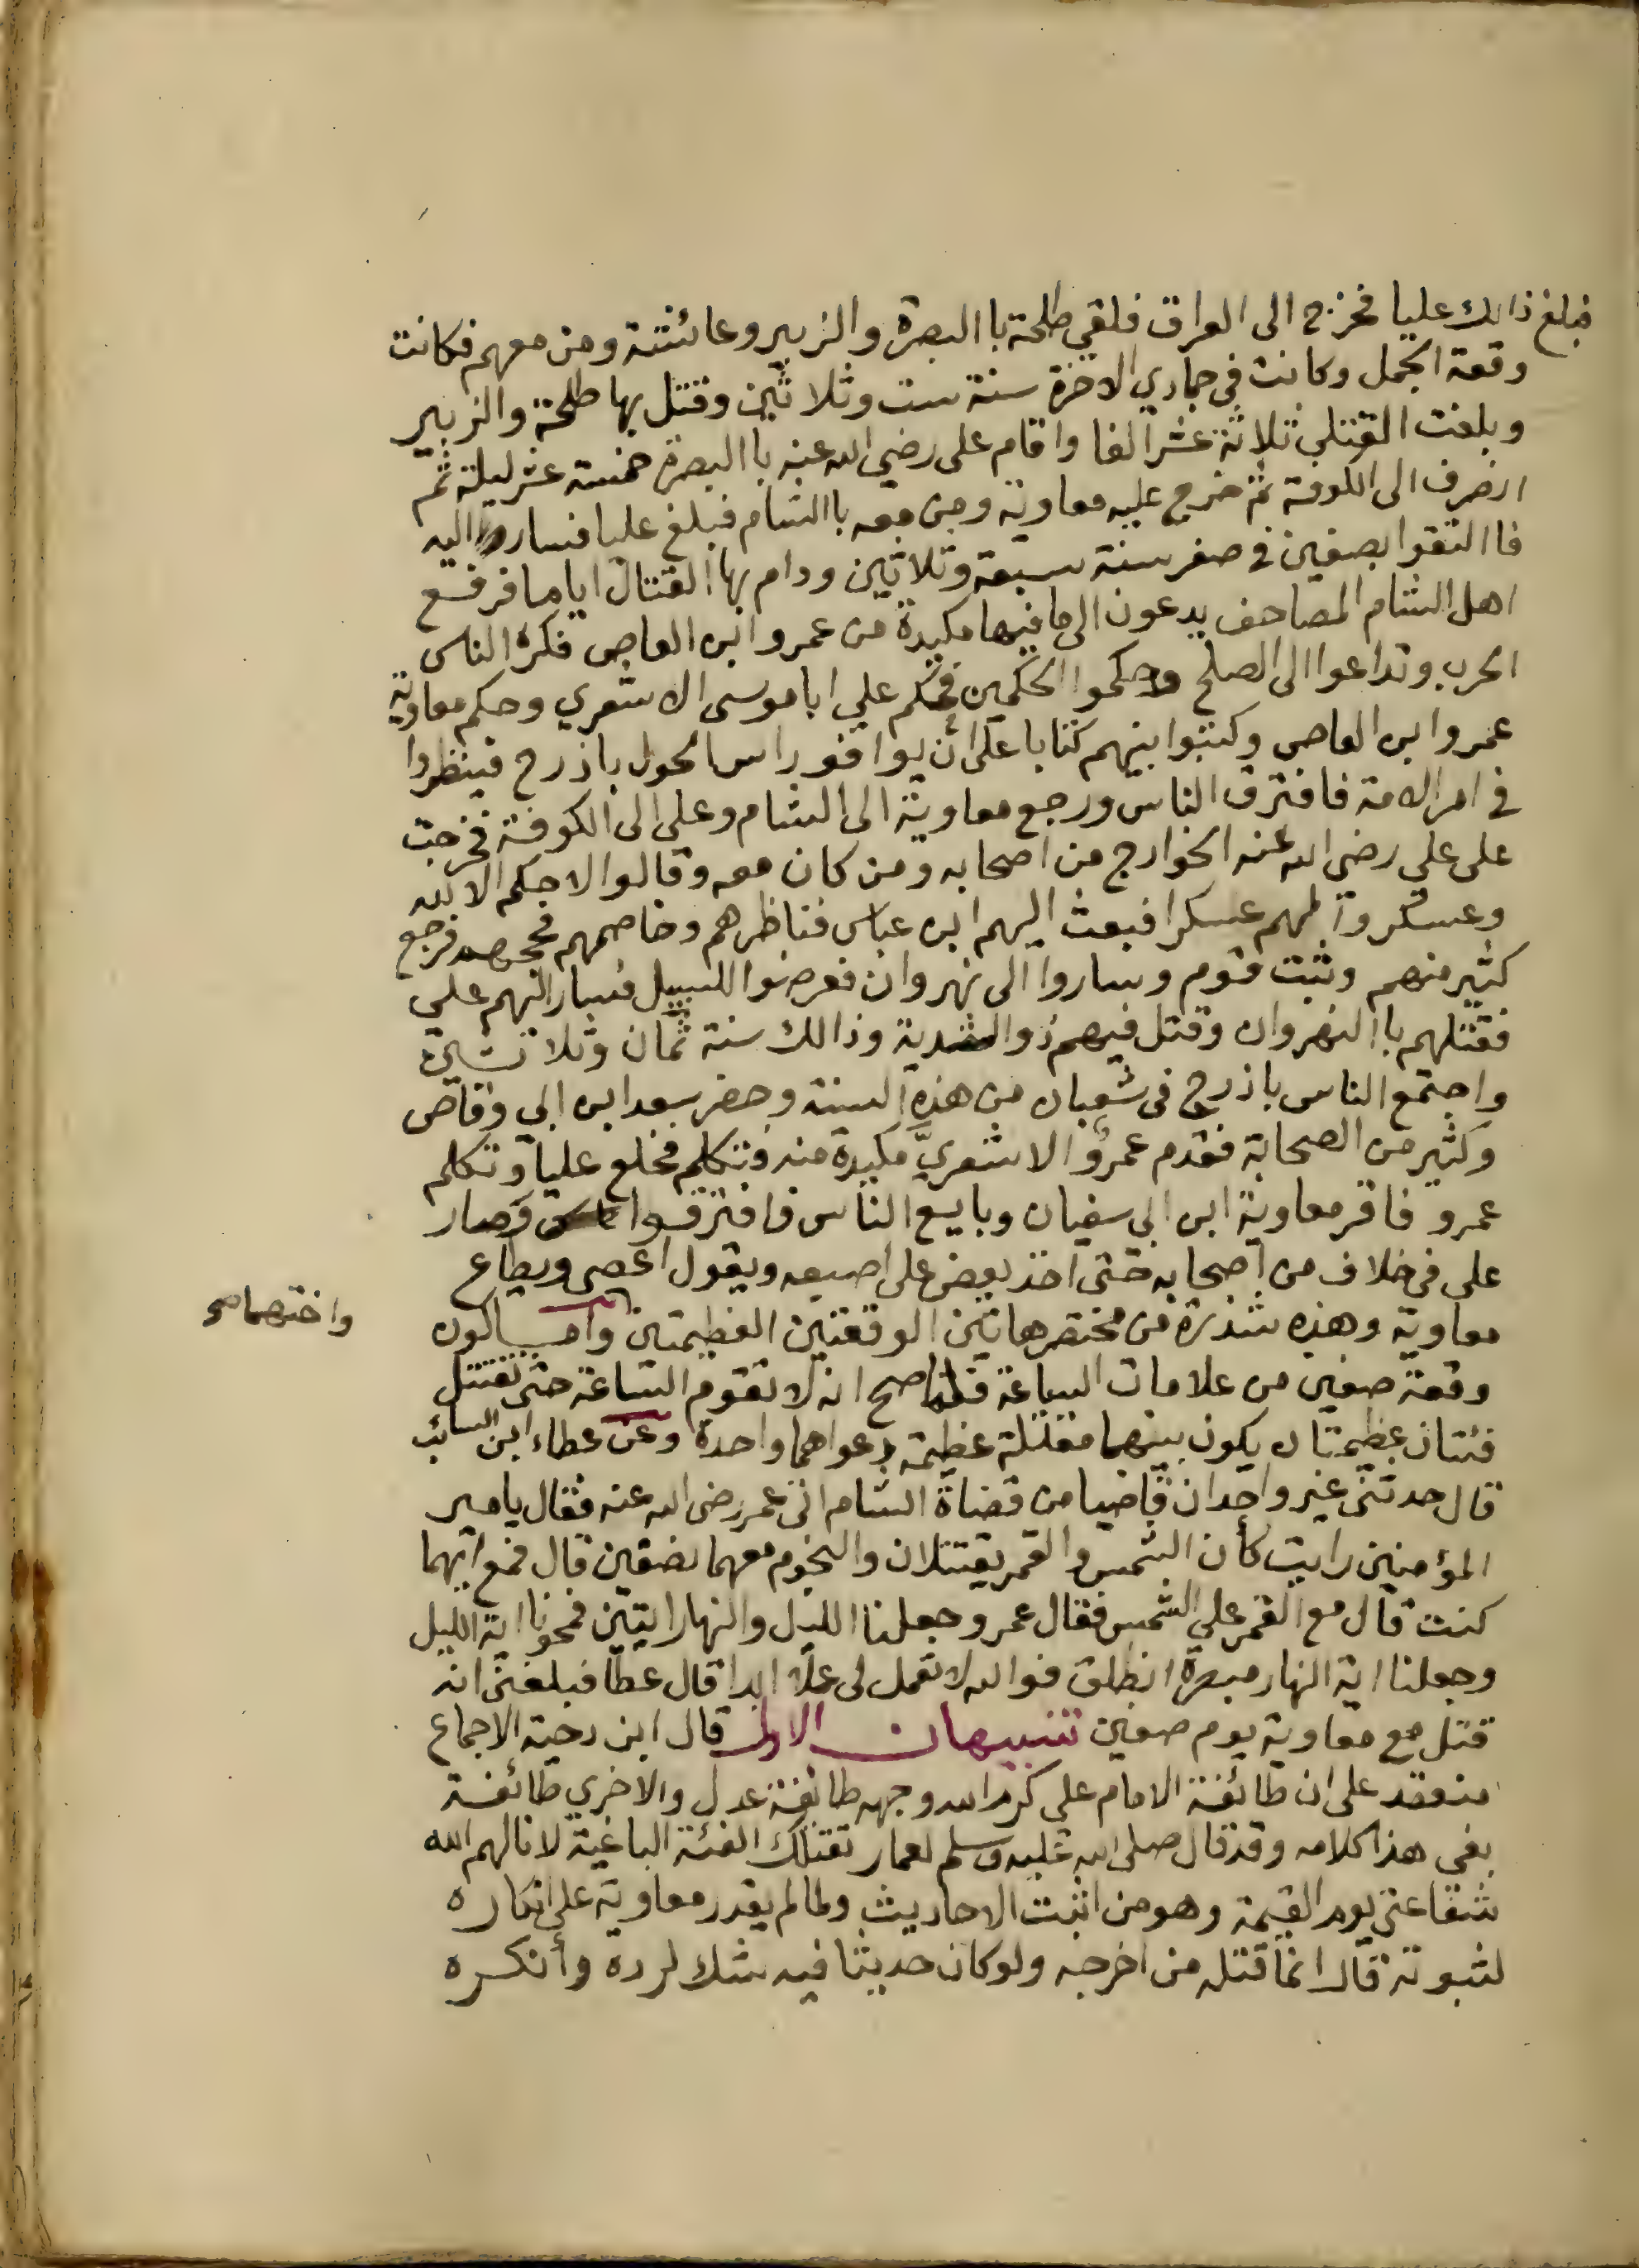 فبلغ ذالك عليا فخرج الى العراق فلقي طلحة باالبصرة والزبير وعائشة ومن معهم فكانت
وقعة الجمل وكانت في جمادي الاخرة سنة ست وثلاثين وقتل بها طلحة والزبير
وبلغت القتلي ثلاثة عشر الفا واقام على رضي الله عنه باالبصرة خمسة عشر ليلة ثم
انصرف الى الكوفة ثم خرج عليه معاوية ومن معه باالشام فبلغ عليا فسار اليه
فاالتقوا بصفين في صفر سنة سبعة وثلاثين ودام بها القتال اياما فرفع
اهل الشام المصاحف يدعون الى ما فيها مكيدة من عمروا ابن العاص فكره الناس
الحرب وتداعوا الى الصلح وحكموا الحكمين فحكم علي ابا موسى الاشعري وحكم معاوية
عمروا بن العاص وكتبوا بينهم كتابا على أن يوافوا راس الحول باذرح فينظروا
في امر الامة فافترق الناس ورجع معاوية الى الشام وعلي الى الكوفة فخرجت
على علي رضي الله عنه الخوارج من اصحابه ومن كان معه وقالوا لا حكم الا لله
وعسكروا لهم عسكرا فبعث اليهم ابن عباس فناظرهم وخاصمهم فحجهم فرجع
كثير منهم وثبت قوم وساروا الى نهروان فعرضوا للسبيل فسار اليهم علي
فقتلهم باالنهروان وقتل فيهم ذوالثدية وذالك سنة ثمان وثلاثين
واجتمع الناس باذرح في شعبان من هذه السنة وحضر سعد ابن ابي وقاص
وكثير من الصحابة فقدم عمرو الاشعري مكيدة منه وتكلم فخلع عليا وتكلم
عمرو فاقر معاوية ابن ابي سفيان وبايع الناس فافترقوا وصار
على في خلاف من اصحابه حتى اخذ يعض على اصبعه ويقول اعصى ويطاع
معاوية وهذه شذرة من مختصر هاتين الوقعتين العظيمتين واما كون
واختصام
وقعة صفين من علامات الساعة فلما صح انه لا تقوم الساعة حتى تقتتل
فئتان عظيمتان يكون بينهما مقتلة عظيمة دعواهما واحدة وعن عطاء ابن السائب
قال حدثنى غير واحد ان قاضيا من قضاة الشام اتى عمر رضى الله عنه فقال يامير
المؤمنين رايت كأن الشمس والقمر يقتتلان والنجوم معهما نصفين قال فمع ايهما
كنت قال مع القمر على الشمس فقال عمر وجعلنا الليل والنهار ايتين فمحونا اية الليل
وجعلنا اية النهار مبصرة انطلق فوالله لا تعمل لى عملا ابدا قال عطا فبلغنى انه
قتل مع معاوية يوم صفين تنبيهان الاول قال ابن دحية الاجماع
منعقد على ان طائفة الامام علي كرم الله وجهه طائفة عدل والاخري طائفة
بغي هذا كلامه وقد قال صلى الله عليه وسلم لعمار تقتلك الفئة الباغية لا نالهم الله
شفاعتى يوم القيمة وهو من اثبت الاحاديث ولما لم يقدر معاوية على انكاره
لثبوته قال انما قتله من اخرجه ولو كان حديثا فيه شك لرده وأنكره